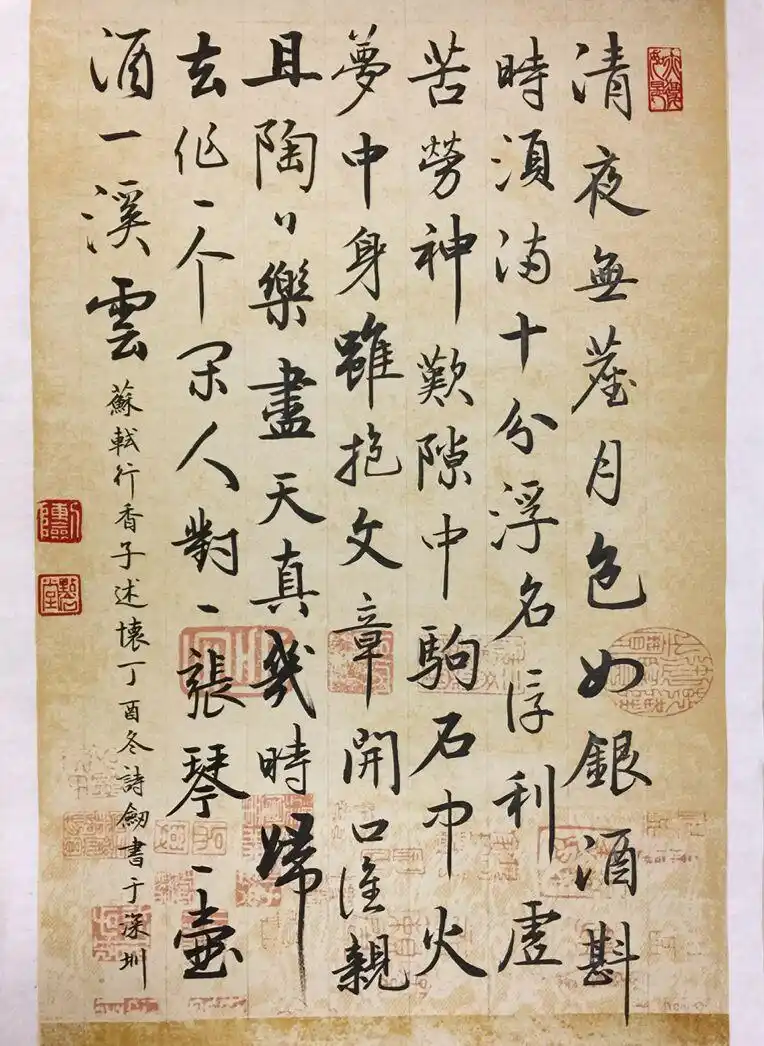 清夜無塵月色如銀酒斟
時須滿十分浮名浮利虛
苦勞神歎隙中駒石中火
夢中身雖抱文章開口誰親
且陶〻樂盡天真幾時歸
去作一个閑人對一張琴一壺
酒一溪雲
蘇軾行香子述懷丁酉冬詩劒書于深圳